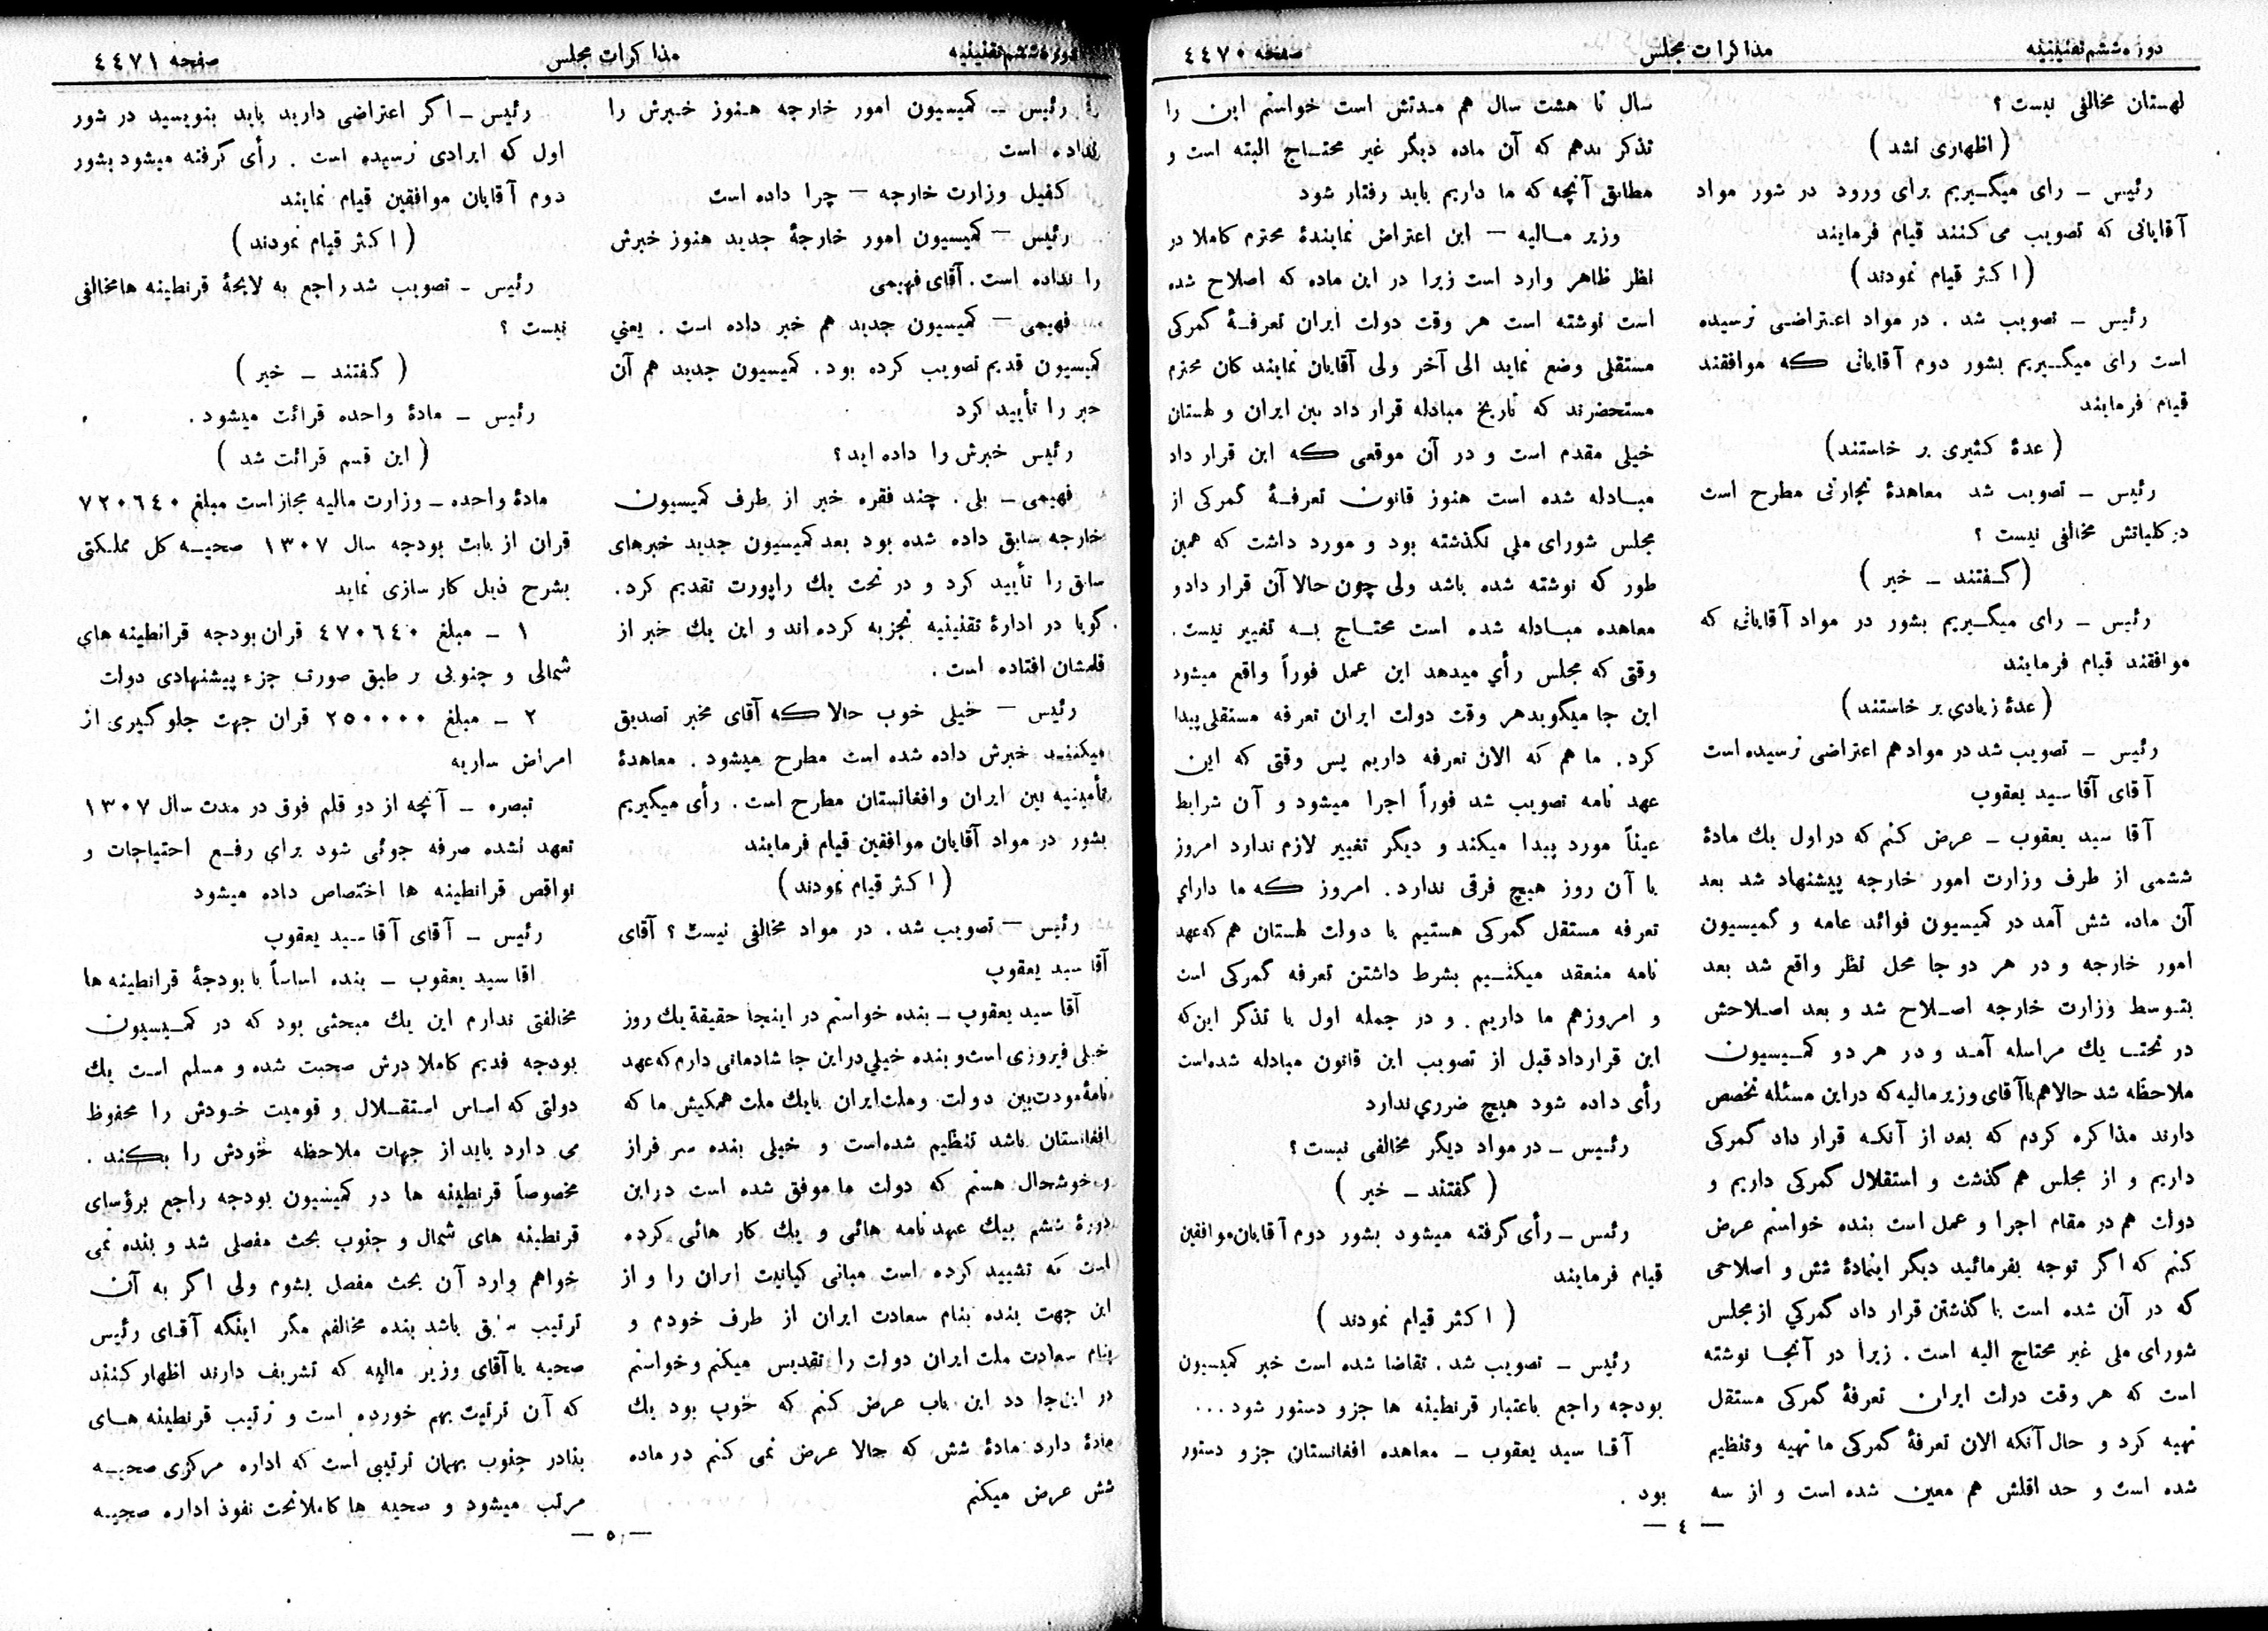 دوره ششم تقنینیه مذاکرات مجلس صفحه ٤٤٧٠
لهستان مخالفی نیست ؟
( اظهاری نشد )
رئیس – رای میگیریم برای ورود در شور مواد
آقایانی که تصویب می کنند قیام فرمایند
( اکثر قیام نمودند )
رئیس – تصویب شد . در مواد اعتراضی نرسیده
است رای میگیریم بشور دوم آقایانی که موافقند
قیام فرمایند
( عدهٔ کثیری بر خاستند )
رئیس – تصویب شد معاهدهٔ تجارتی مطرح است
در کلیاتش مخالفی نیست ؟
( گفتند – خیر )
رئیس – رای میگیریم بشور در مواد آقایانی که
موافقند قیام فرمایند
( عدهٔ زیادی بر خاستند )
رئیس – تصویب شد در مواد هم اعتراضی نرسیده است
آقای آقا سید یعقوب
آقا سید یعقوب – عرض کنم که در اول یك مادهٔ
ششمی از طرف وزارت امور خارجه پیشنهاد شد بعد
آن ماده شش آمد در کمیسیون فوائد عامه و کمیسیون
امور خارجه و در هر دو جا محل نظر واقع شد بعد
بتوسط وزارت خارجه اصلاح شد و بعد اصلاحش
در تحت یك مراسله آمد و در هر دو کمیسیون
ملاحظه شد حالا هم با آقای وزیر مالیه که در این مسئله تخصص
دارند مذاکره کردم که بعد از آنکه قرار داد گمرکی
داریم و از مجلس هم گذشت و استقلال گمرکی داریم و
دولت هم در مقام اجرا و عمل است بنده خواستم عرض
کنم که اگر توجه بفرمائید دیگر اینمادهٔ شش و اصلاحی
که در آن شده است با گذشتن قرار داد گمرکی از مجلس
شورای ملی غیر محتاج الیه است . زیرا در آنجا نوشته
است که هر وقت دولت ایران تعرفهٔ گمرکی مستقل
تهیه کرد و حال آنکه الان تعرفهٔ گمرکی ما تهیه و تنظیم
شده است و حد اقلش هم معین شده است و از سه
سال تا هشت سال هم مدتش است خواستم این را
تذکر بدهم که آن ماده دیگر غیر محتاج الیته است و
مطابق آنچه که ما داریم باید رفتار شود
وزیر مالیه – این اعتراض نمایندهٔ محترم کاملا در
نظر ظاهر وارد است زیرا در این ماده که اصلاح شده
است نوشته است هر وقت دولت ایران تعرفهٔ گمرکی
مستقلی وضع نماید الی آخر ولی آقایان نمایند کان محترم
مستحضرند که تاریخ مبادله قرار داد بین ایران و لهستان
خیلی مقدم است و در آن موقعی که این قرار داد
مبادله شده است هنوز قانون تعرفهٔ گمرکی از
مجلس شورای ملی نگذشته بود و مورد داشت که همین
طور که نوشته شده باشد ولی چون حالا آن قرار داد و
معاهده مبادله شده است محتاج به تغییر نیست .
وقتی که مجلس رأی میدهد این عمل فوراً واقع میشود
این جا میگوید هر وقت دولت ایران تعرفه مستقلی پیدا
کرد . ما هم که الان تعرفه داریم پس وقتی که این
عهد نامه تصویب شد فوراً اجرا میشود و آن شرایط
عیناً مورد پیدا میکند و دیگر تغییر لازم ندارد امروز
با آن روز هیچ فرقی ندارد . امروز که ما دارای
تعرفه مستقل گمرکی هستیم با دولت لهستان هم که عهد
نامه منعقد میکنیم بشرط داشتن تعرفه گمرکی است
و امروز هم ما داریم . و در جمله اول با تذکر این که
این قرارداد قبل از تصویب این قانون مبادله شده است
رأی داده شود هیچ ضرری ندارد
رئیس – در مواد دیگر مخالفی نیست ؟
( گفتند – خیر )
رئیس – رأی گرفته میشود بشور دوم آقایان موافقین
قیام فرمایند
( اکثر قیام نمودند )
رئیس – تصویب شد . تقاضا شده است خبر کمیسیون
بودجه راجع باعتبار قرنطینه ها جزو دستور شود ...
آقا سید یعقوب – معاهده افغانستان جزو دستور
بود .
— ٤ —
دوره ششم تقنینیه مذاکرات مجلس صفحه ٤٤٧١
رئیس – کمیسیون امور خارجه هنوز خبرش را
نداده است
کفیل وزارت خارجه – چرا داده است
رئیس – کمیسیون امور خارجهٔ جدید هنوز خبرش
را نداده است . آقای فهیمی
فهیمی – کمیسیون جدید هم خبر داده است . یعنی
کمیسیون قدیم تصویب کرده بود . کمیسیون جدید هم آن
خبر را تأیید کرد
رئیس خبرش را داده اید ؟
فهیمی – بلی . چند فقره خبر از طرف کمیسیون
خارجه سابق داده شده بود بعد کمیسیون جدید خبرهای
سابق را تأیید کرد و در تحت یك راپورت تقدیم کرد .
گویا در ادارهٔ تقنینیه تجزیه کرده اند و این یك خبر از
قلمشان افتاده است .
رئیس – خیلی خوب حالا که آقای مخبر تصدیق
میکنند خبرش داده شده است مطرح میشود . معاهدهٔ
تأمینیه بین ایران و افغانستان مطرح است . رأی میگیریم
بشور در مواد آقایان موافقین قیام فرمایند
( اکثر قیام نمودند )
رئیس – تصویب شد . در مواد مخالفی نیست ؟ آقای
آقا سید یعقوب
آقا سید یعقوب – بنده خواستم در اینجا حقیقة یك روز
خیلی فیروزی است و بنده خیلی در این جا شادمانی دارم که عهد
نامهٔ مودت بین دولت و ملت ایران با یك ملت همکیش ما که
افغانستان باشد تنظیم شده است و خیلی بنده سر فراز
و خوشحال هستم که دولت ما موفق شده است در این
دورهٔ ششم بیك عهد نامه هائی و یك کار هائی کرده
است که تشیید کرده است مبانی کیانیت ایران را و از
این جهت بنده بنام سعادت ایران از طرف خودم و
بنام سعادت ملت ایران دولت را تقدیس میکنم و خواستم
در این جا دد این باب عرض کنم که خوب بود یك
مادهٔ دارد مادهٔ شش که حالا عرض نمی کنم در ماده
شش عرض میکنم
رئیس – اکر اعتراضی دارید باید بنویسید در شور
اول که ایرادی نرسیده است . رأی گرفته میشود بشور
دوم آقایان موافقین قیام نمایند
( اکثر قیام نمودند )
رئیس – تصویب شد راجع به لایحهٔ قرنطینه ها مخالفی
نیست ؟
( گفتند – خیر )
رئیس – مادهٔ واحده قرائت میشود .
( این قسم قرائت شد )
مادهٔ واحده – وزارت مالیه مجاز است مبلغ ٧٢٠٦٤٠
قران از بابت بودجه سال ١٣٠٧ صحیه کل مملکتی
بشرح ذیل کار سازی نماید
١ – مبلغ ٤٧٠٦٤٠ قران بودجه قرانطینه های
شمالی و جنوبی بر طبق صورت جزء پیشنهادی دولت
٢ – مبلغ ٢٥٠٠٠٠ قران جهت جلو گیری از
امراض ساریه
تبصره – آنچه از دو قلم فوق در مدت سال ١٣٠٧
تعهد نشده صرفه جوئی شود برای رفع احتیاجات و
نواقص قرانطینه ها اختصاص داده میشود
رئیس – آقای آقا سید یعقوب
اقا سید یعقوب – بنده اساساً با بودجهٔ قرانطینه ها
مخالفتی ندارم این یك مبحثی بود که در کمیسیون
بودجه قدیم کاملا درش صحبت شده و مسلم است یك
دولتی که اساس استقلال و قومیت خودش را محفوظ
می دارد باید از جهات ملاحظه خودش را بکند .
مخصوصاً قرنطینه ها در کمیسیون بودجه راجع برؤسای
قرنطینه های شمال و جنوب بحث مفصلی شد و بنده نمی
خواهم وارد آن بحث مفصل بشوم ولی اکر به آن
ترتیب سابق باشد بنده مخالفم مگر اینکه آقای رئیس
صحیه یا آقای وزیر مالیه که تشریف دارند اظهار کنند
که آن ترتیت بهم خورده است و ترتیب قرنطینه های
بنادر جنوب بهمان ترتیبی است که اداره مرکزی صحیه
مرتب میشود و صحیه ها کاملا تحت نفوذ اداره صحیه
— ٥ —